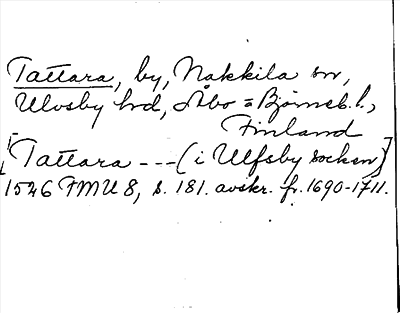 Tattara, by, Nakkila sn,
Ulvsby hd, Åbo = Björneb. l.,
Finland
[Tattara --- (i Ulfsby socken)]
1546 FMU 8, s. 181. avskr. fr. 1690-1711.